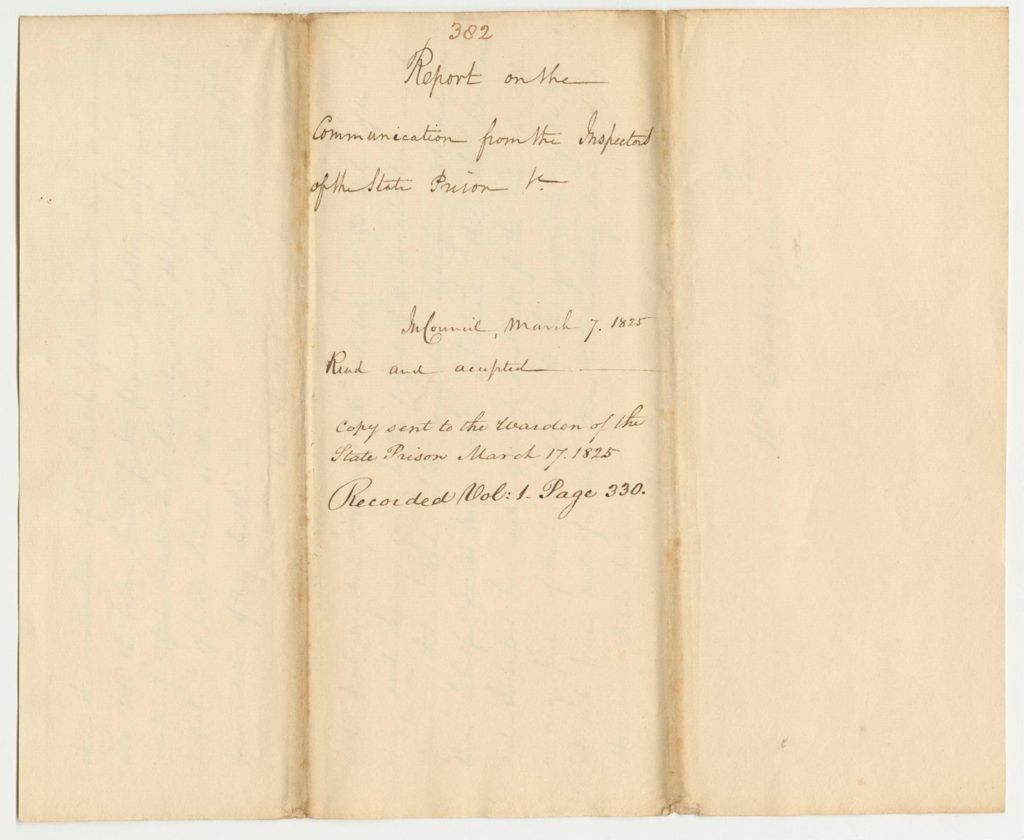 382
Report on the
Communication from the Inspectors
of the State Prison &c.
In Council, March 7. 1825
Read and accepted
copy sent to the Warden of the
State Prison March 17. 1825
Recorded Vol: 1. Page 330.